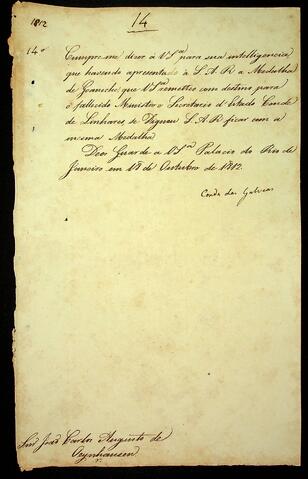 1812
14
14º
Cumpre me dizer à VSª para sua intelligencia
que havendo apresentado à S.A.R a Medalha
de que VSª remetteo com destino para
o fallecido Ministro e Secretario d'Estado Conde
de Linhares se Dignou S.A.R ficar com a
mesma Medalha.
Deos Guarde a VSª Palacio do Rio de
Janeiro em 18 de Outubro de 1812.
Conde das Galveas
Snr João Carlos Augusto de
Oeynhausen